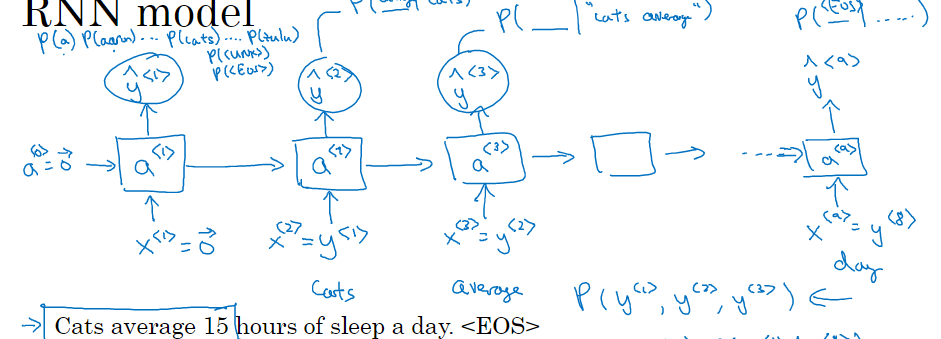 RNN model
P(a) P(aaron) ... P(cats) ... P(zulu)
P(<UNK>)
P(<EOS>)
P( cats)
P( ___ | "cats average")
P(<EOS> | .....)
ŷ<1> ŷ<2> ŷ<3> ŷ<9>
a<0> = 0⃗ → a<1> → a<2> → a<3> → → ...→ a<9>
x<1> = 0⃗ x<2> = y<1> x<3> = y<2> x<9> = y<8>
Cats average day
P(y<1>, y<2>, y<3>) ←
→ Cats average 15 hours of sleep a day. <EOS>